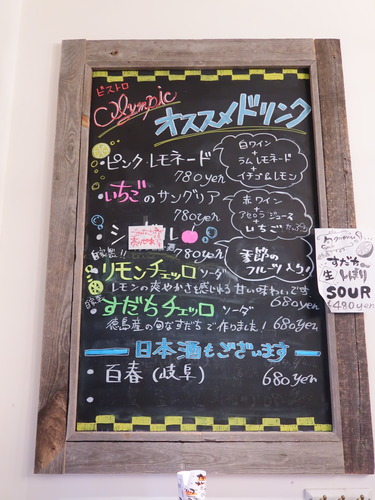 ビストロ
Olympic
オススメドリンク
・ピンクレモネード
780yen
白ワイン
+
ラムレモネード
+
イチゴ&レモン
・いちごのサングリア
780yen
赤ワイン
+
アセロラジュース
+
いちごたっぷり
780yen
季節の
フルーツ入り!
自家製!!
リモンチェッロソーダ
レモンの爽やかさを感じれる甘い味わいです
680yen
自家製
すだちチェッロソーダ
徳島産の旬なすだちで作りました!
680yen
日本酒もございます
・百春(岐阜)
680yen
・
すだち
生しぼり
SOUR
¥480yen